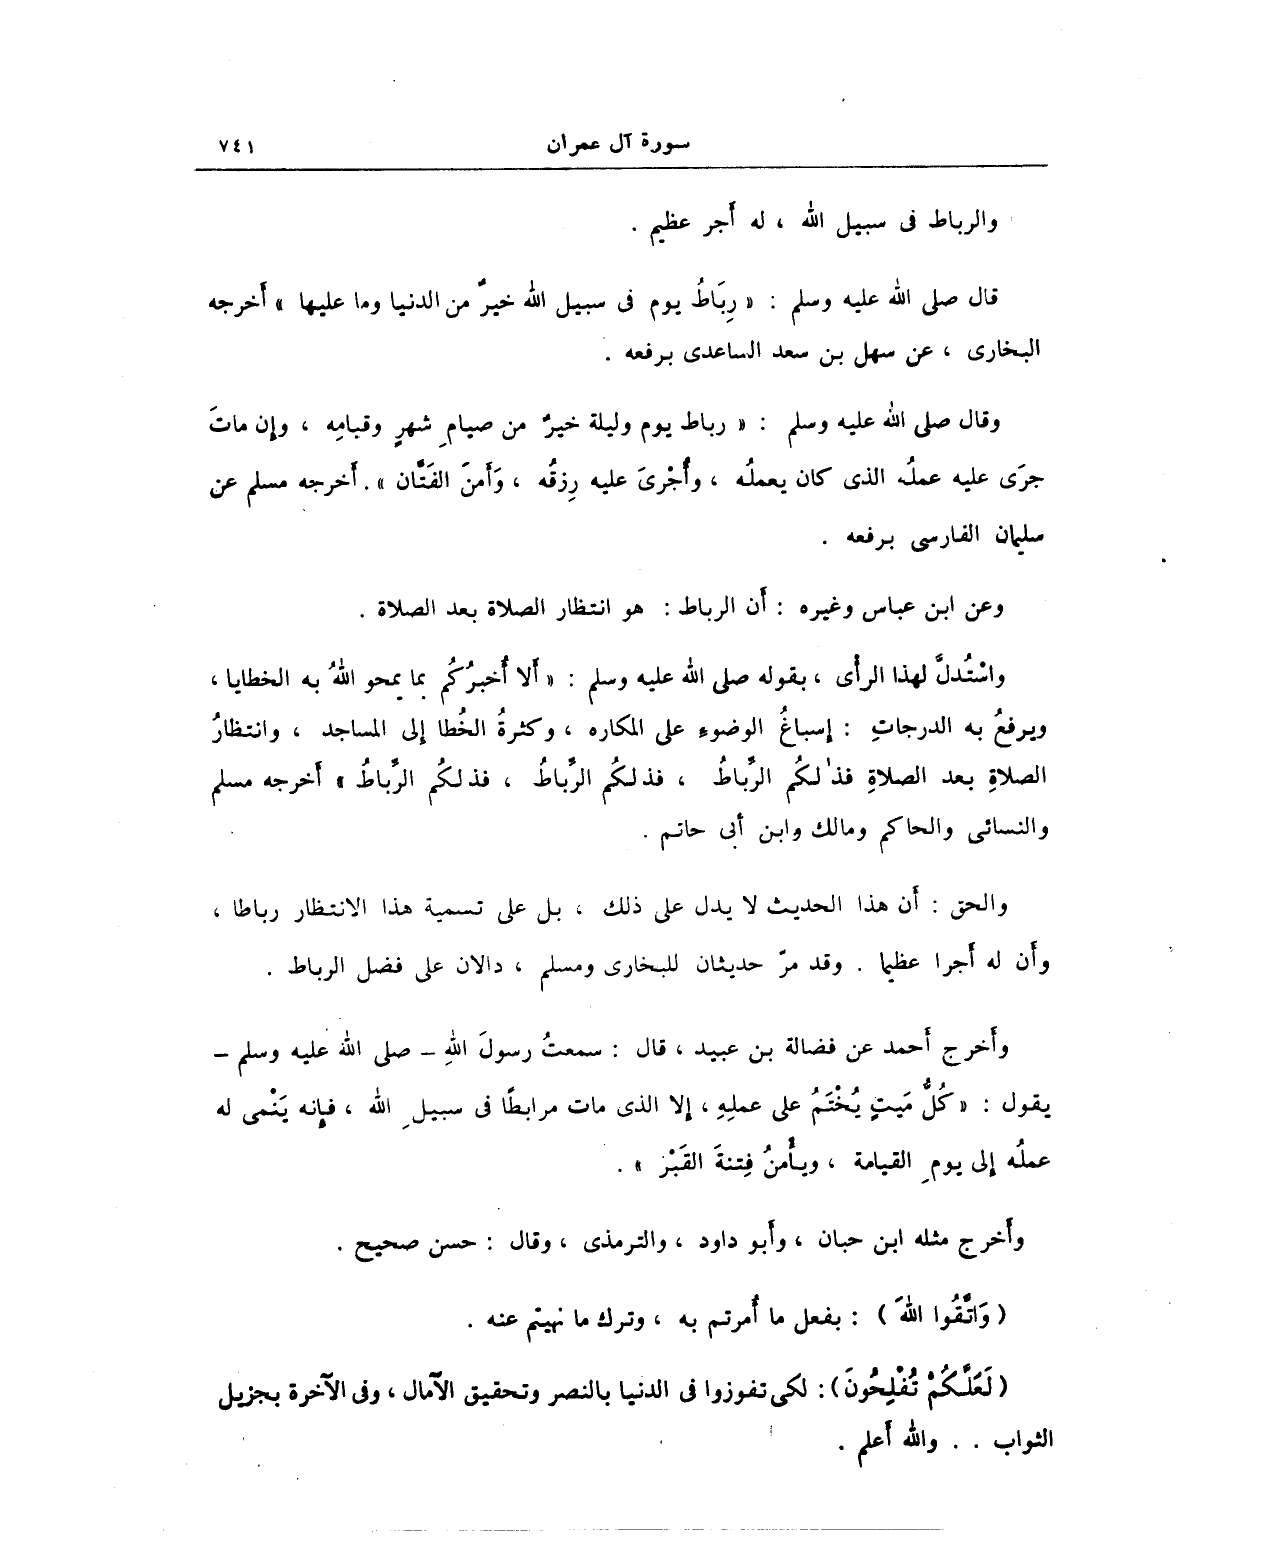 سورة آل عمران ٧٤١
والرباط فى سبيل الله ، له أَجر عظيم .
قال صلى الله عليه وسلم : « رِبَاطُ يوم فى سبيل الله خيرٌ من الدنيا وما عليها » أَخرجه
البخارى ، عن سهل بن سعد الساعدى يرفعه .
وقال صلى الله عليه وسلم : « رباط يوم وليلة خيرٌ من صيامِ شهرٍ وقيامِه ، وإن ماتَ
جرَى عليه عملُه الذى كان يعملُه ، وأُجْرِىَ عليه رِزقُه ، وَأَمنَ الفَتَّان » . أَخرجه مسلم عن
سلمان الفارسى يرفعه .
وعن ابن عباس وغيره : أَن الرباط : هو انتظار الصلاة بعد الصلاة .
واسْتُدلَّ لهذا الرأْى ، بقوله صلى الله عليه وسلم : « أَلا أُخبرُكُم بما يمحو اللهُ به الخطايا ،
ويرفعُ به الدرجاتِ : إسباغُ الوضوءِ على المكاره ، وكثرةُ الخُطا إلى المساجد ، وانتظارُ
الصلاةِ بعد الصلاةِ فذٰلكُم الرِّباطُ ، فذلكُم الرِّباطُ ، فذلكُم الرِّباطُ » أَخرجه مسلم
والنسائى والحاكم ومالك وابن أَبى حاتم .
والحق : أَن هذا الحديث لا يدل على ذلك ، بل على تسمية هذا الانتظار رباطا ،
وأَن له أَجرا عظيما . وقد مرّ حديثان للبخارى ومسلم ، دالان على فضل الرباط .
وأَخرج أَحمد عن فضالة بن عبيد ، قال : سمعتُ رسولَ اللهِ – صلى الله عليه وسلم –
يقول : « كُلُّ مَيتٍ يُخْتَمُ على عملِهِ ، إلا الذى مات مرابطًا فى سبيلِ الله ، فإنه يَنْمى له
عملُه إلى يومِ القيامة ، ويأْمنُ فِتنةَ القَبْرِ » .
وأَخرج مثله ابن حبان ، وأَبو داود ، والترمذى ، وقال : حسن صحيح .
( وَاتَّقُوا اللهَ ) : بفعل ما أُمرتم به ، وترك ما نهيتم عنه .
( لَعَلَّكُمْ تُفْلِحُونَ ) : لكى تفوزوا فى الدنيا بالنصر وتحقيق الآمال ، وفى الآخرة بجزيل
الثواب . . والله أَعلم .